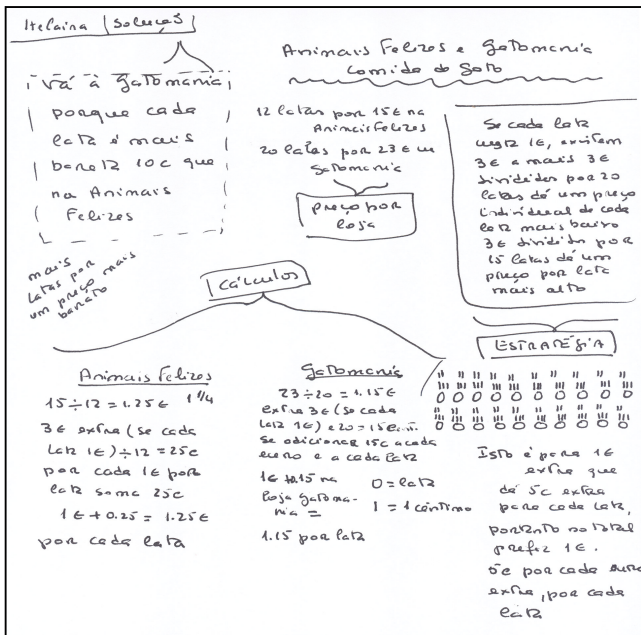 Itelaina | Soluções
Vá à Gatomania
porque cada
lata é mais
barata 10c que
na Animais
Felizes
mais
latas por
um preço mais
barato
Animais Felizes e Gatomania
Comida de Gato
12 latas por 15€ na
Animais Felizes
20 latas por 23€ na
Gatomania
preço por
loja
Se cada lata
custa 1€, existem
3€ a mais 3€
divididos por 20
latas dá um preço
individual de cada
lata mais baixo
3€ dividido por
15 latas dá um
preço por lata
mais alto
Cálculos
Animais Felizes
15÷12 = 1.25€ 1 1/4
3€ extra (se cada
lata 1€) ÷12 = 25c
por cada 1€ por
lata soma 25c
1€ + 0.25 = 1.25€
por cada lata
Gatomania
23÷20 = 1.15€
extra 3€ (se cada
lata 1€) e 20 = 15
se adicionar 15c a cada
euro e a cada lata
1€ + 0.15 na
loja Gatoma-
nia =
1.15 por lata
O = lata
I = 1 cêntimo
ESTRATÉGIA
Isto é para 1€
extra que
dá 5c extra
para cada lata,
portanto no total
prefiz 1€.
5c por cada euro
extra, por cada
lata